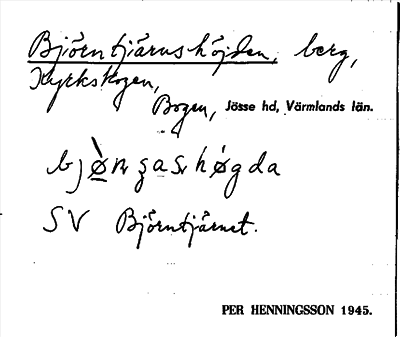 Björntjärnshöjden, berg,
Kyrkskogen,
Bogen, Jösse hd, Värmlands län.
SV Björntjärnet.
PER HENNINGSSON 1945.